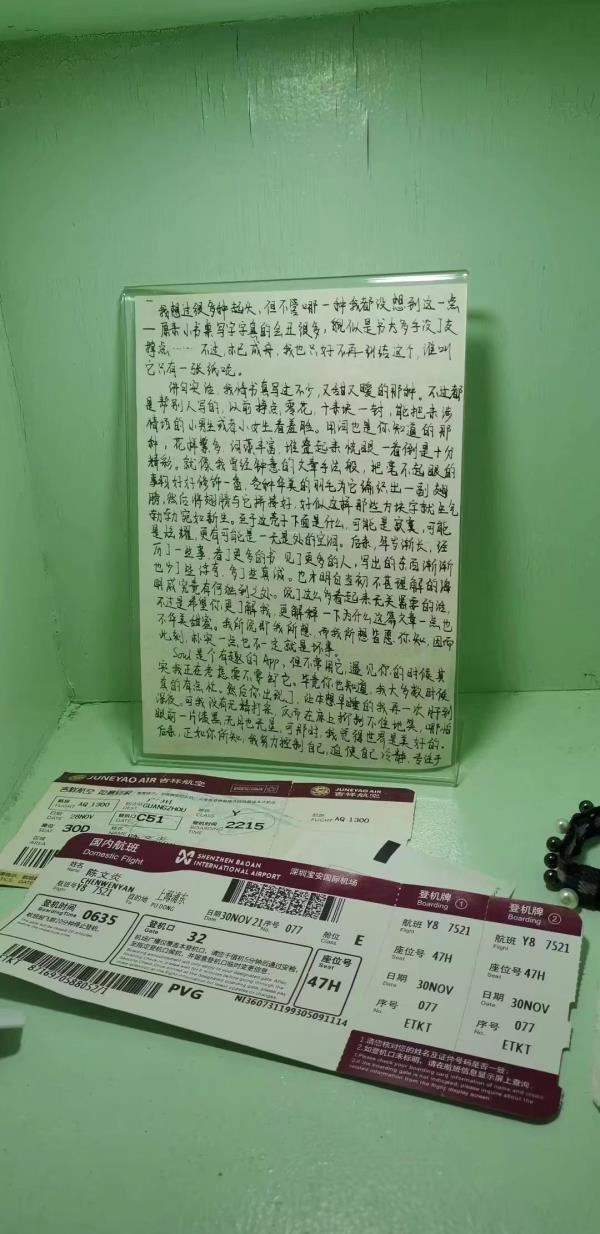 我想过很多种起头，但不管哪一种我都没想到这一点
撑点……不过，木已成舟，我也只好不再纠结这个，谁叫
它只有一张纸呢。
讲句实话，我情书真写过不少，又甜又暖的那种。不过都
是帮别人写的，以前挣点零花，十来块一封，能把未涉
情语的小男生或者小女生看羞脸。用词也是你知道的那
种，花样繁多，词藻丰富，堆叠起来恍眼一看倒是十分
精彩。就像我曾经钟意的文章手法般，把毫不起眼的
事物好好修饰一番，各种华美的羽毛为它编织出一副翅
膀，然后将翅膀与它拼接好，好似这样那些方块字就生气
勃勃宛如新生。至于这壳子下面是什么，可能是寂寞，可能
是炫耀，更有可能是一无是处的空洞。后来，年岁渐长，经
历了一些事，看了更多的书，见了更多的人，写出的东西渐渐
也少了些，多了些真诚。也才明白当初不甚理解的海
明威究竟有何独到之处。说了这么多看起来无关紧要的话，
不过是希望你更了解我，更解释一下为什么这篇文章一点也
不华美甜蜜。我所说即我所想，而我所想皆愿你知，因而
此刻，朴实一点也不一定就是坏事。
Soul是个有趣的App，但不常用它，遇见你的时候其
实我正在考虑要不要卸它。毕竟你也知道，我大多数时候
真的有点忙。然后你出现了，让本想早睡的我再一次好到
深夜。可我没有无精打采，反而在床上抑制不住地笑，哪怕
眼前一片漆黑，无月也无星，可那时，我觉得世界是美好的。
后来，正如你所知，我努力控制自己，迫使自己冷静，专注于
JUNEYAO AIR 吉祥航空
吉祥航空
航班 FLIGHT AQ 1300
目的地 DEST GUANGZHOU
舱位 CLASS Y
日期 DATE 28NOV
登机口 GATE C51
登机时间 BOARDING TIME 2215
座位 SEAT 30D
区域 AREA
FLIGHT AQ 1300
国内航班
Domestic Flight
SHENZHEN BAOAN INTERNATIONAL AIRPORT 深圳宝安国际机场
姓名 Name 陈文炎
CHENWENYAN
航班号 Flight Y8 7521
目的地 To 上海浦东 PUDONG
日期 Date 30NOV 21 序号 No. 077
舱位 Class E
登机时间 Boarding Time 0635
登机口 Gate 32
座位号 Seat 47H
机场广播仅覆盖本登机口，请您于值机5分钟后通过安检，
至指定登机口候机，并留意登机口临时变更信息
PVG
NI360731199305091114
登机牌 Boarding ①
航班 Y8 7521
座位号 Seat 47H
日期 Date 30NOV
序号 No. 077
ETKT
登机牌 Boarding ②
航班 Y8 7521
座位号 Seat 47H
日期 Date 30NOV
序号 No. 077
ETKT
1.请您核对您的姓名及证件号码是否一致；
2.如登机口未标明，请在航班信息显示屏上查询。
1.Please check your boarding card information of name and
2.If the boarding gate is not indicated, please inquire about the
related information from the flight display screen.